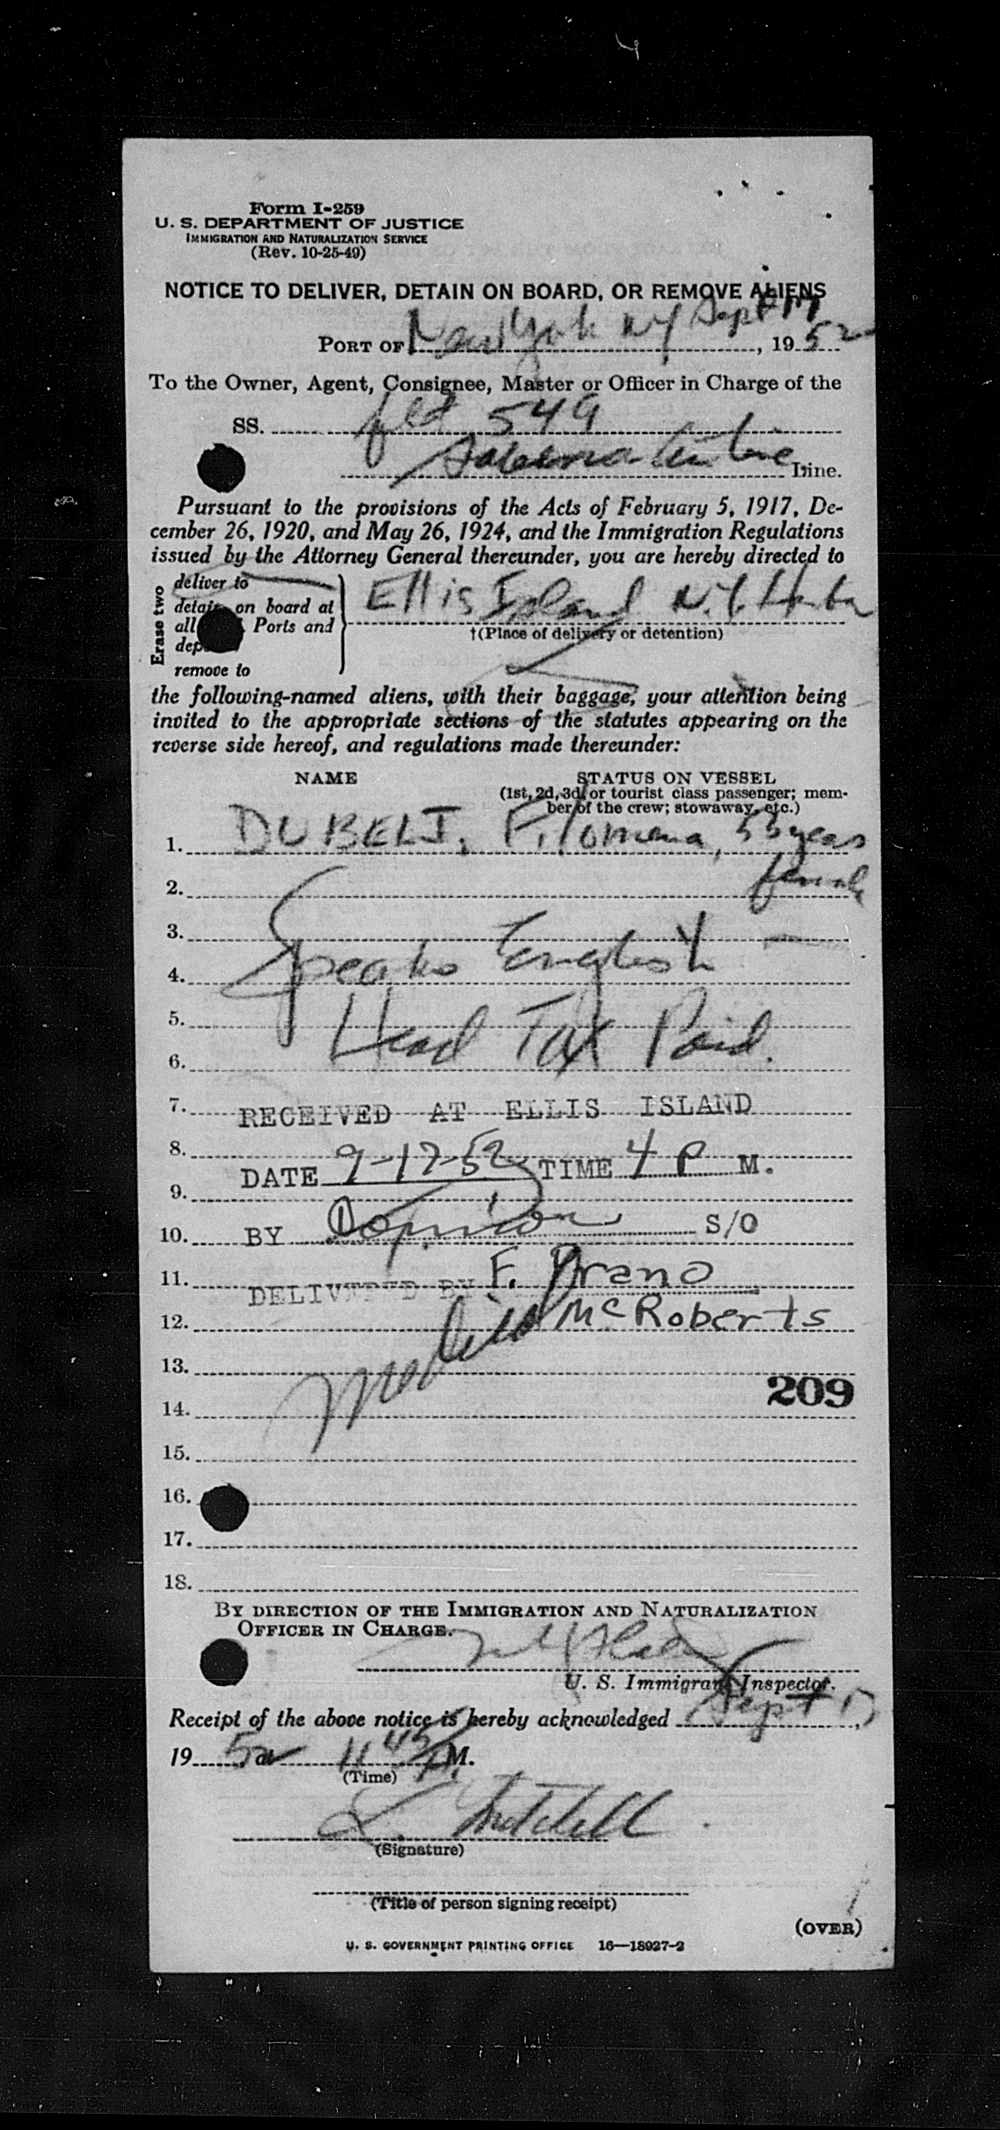 Form I-259
U. S. DEPARTMENT OF JUSTICE
IMMIGRATION AND NATURALIZATION SERVICE
(Rev. 10-25-49)
NOTICE TO DELIVER, DETAIN ON BOARD, OR REMOVE ALIENS
PORT OF New York NY Sept 17, 1952
To the Owner, Agent, Consignee, Master or Officer in Charge of the
SS. flt 549
Sabena Air Line Line.
Pursuant to the provisions of the Acts of February 5, 1917, De-
cember 26, 1920, and May 26, 1924, and the Immigration Regulations
issued by the Attorney General thereunder, you are hereby directed to
Erase two
deliver to
detain on board at
all Ports and
remove to
Ellis Island N.Y. Harbor
†(Place of delivery or detention)
the following-named aliens, with their baggage, your attention being
invited to the appropriate sections of the statutes appearing on the
reverse side hereof, and regulations made thereunder:
NAME STATUS ON VESSEL
(1st, 2d, 3d, or tourist class passenger; mem-
ber of the crew; stowaway, etc.)
1. DUBELJ, Filomena, 53 years
2. female
3.
4. Speaks English
5.
6. Head Tax Paid.
7. RECEIVED AT ELLIS ISLAND
8. DATE 9-17-52 TIME 4 P M.
9.
10. BY S/O
11. DELIVERED BY F. Prano
12. McRoberts
13. Medical
209
14.
15.
16.
17.
18.
BY DIRECTION OF THE IMMIGRATION AND NATURALIZATION
OFFICER IN CHARGE.
U. S. Immigrant Inspector.
Receipt of the above notice is hereby acknowledged Sept 17,
19 52 11 45 A M.
(Time)
L. Mitchell
(Signature)
(Title of person signing receipt)
(OVER)
U. S. GOVERNMENT PRINTING OFFICE 16—18927-2